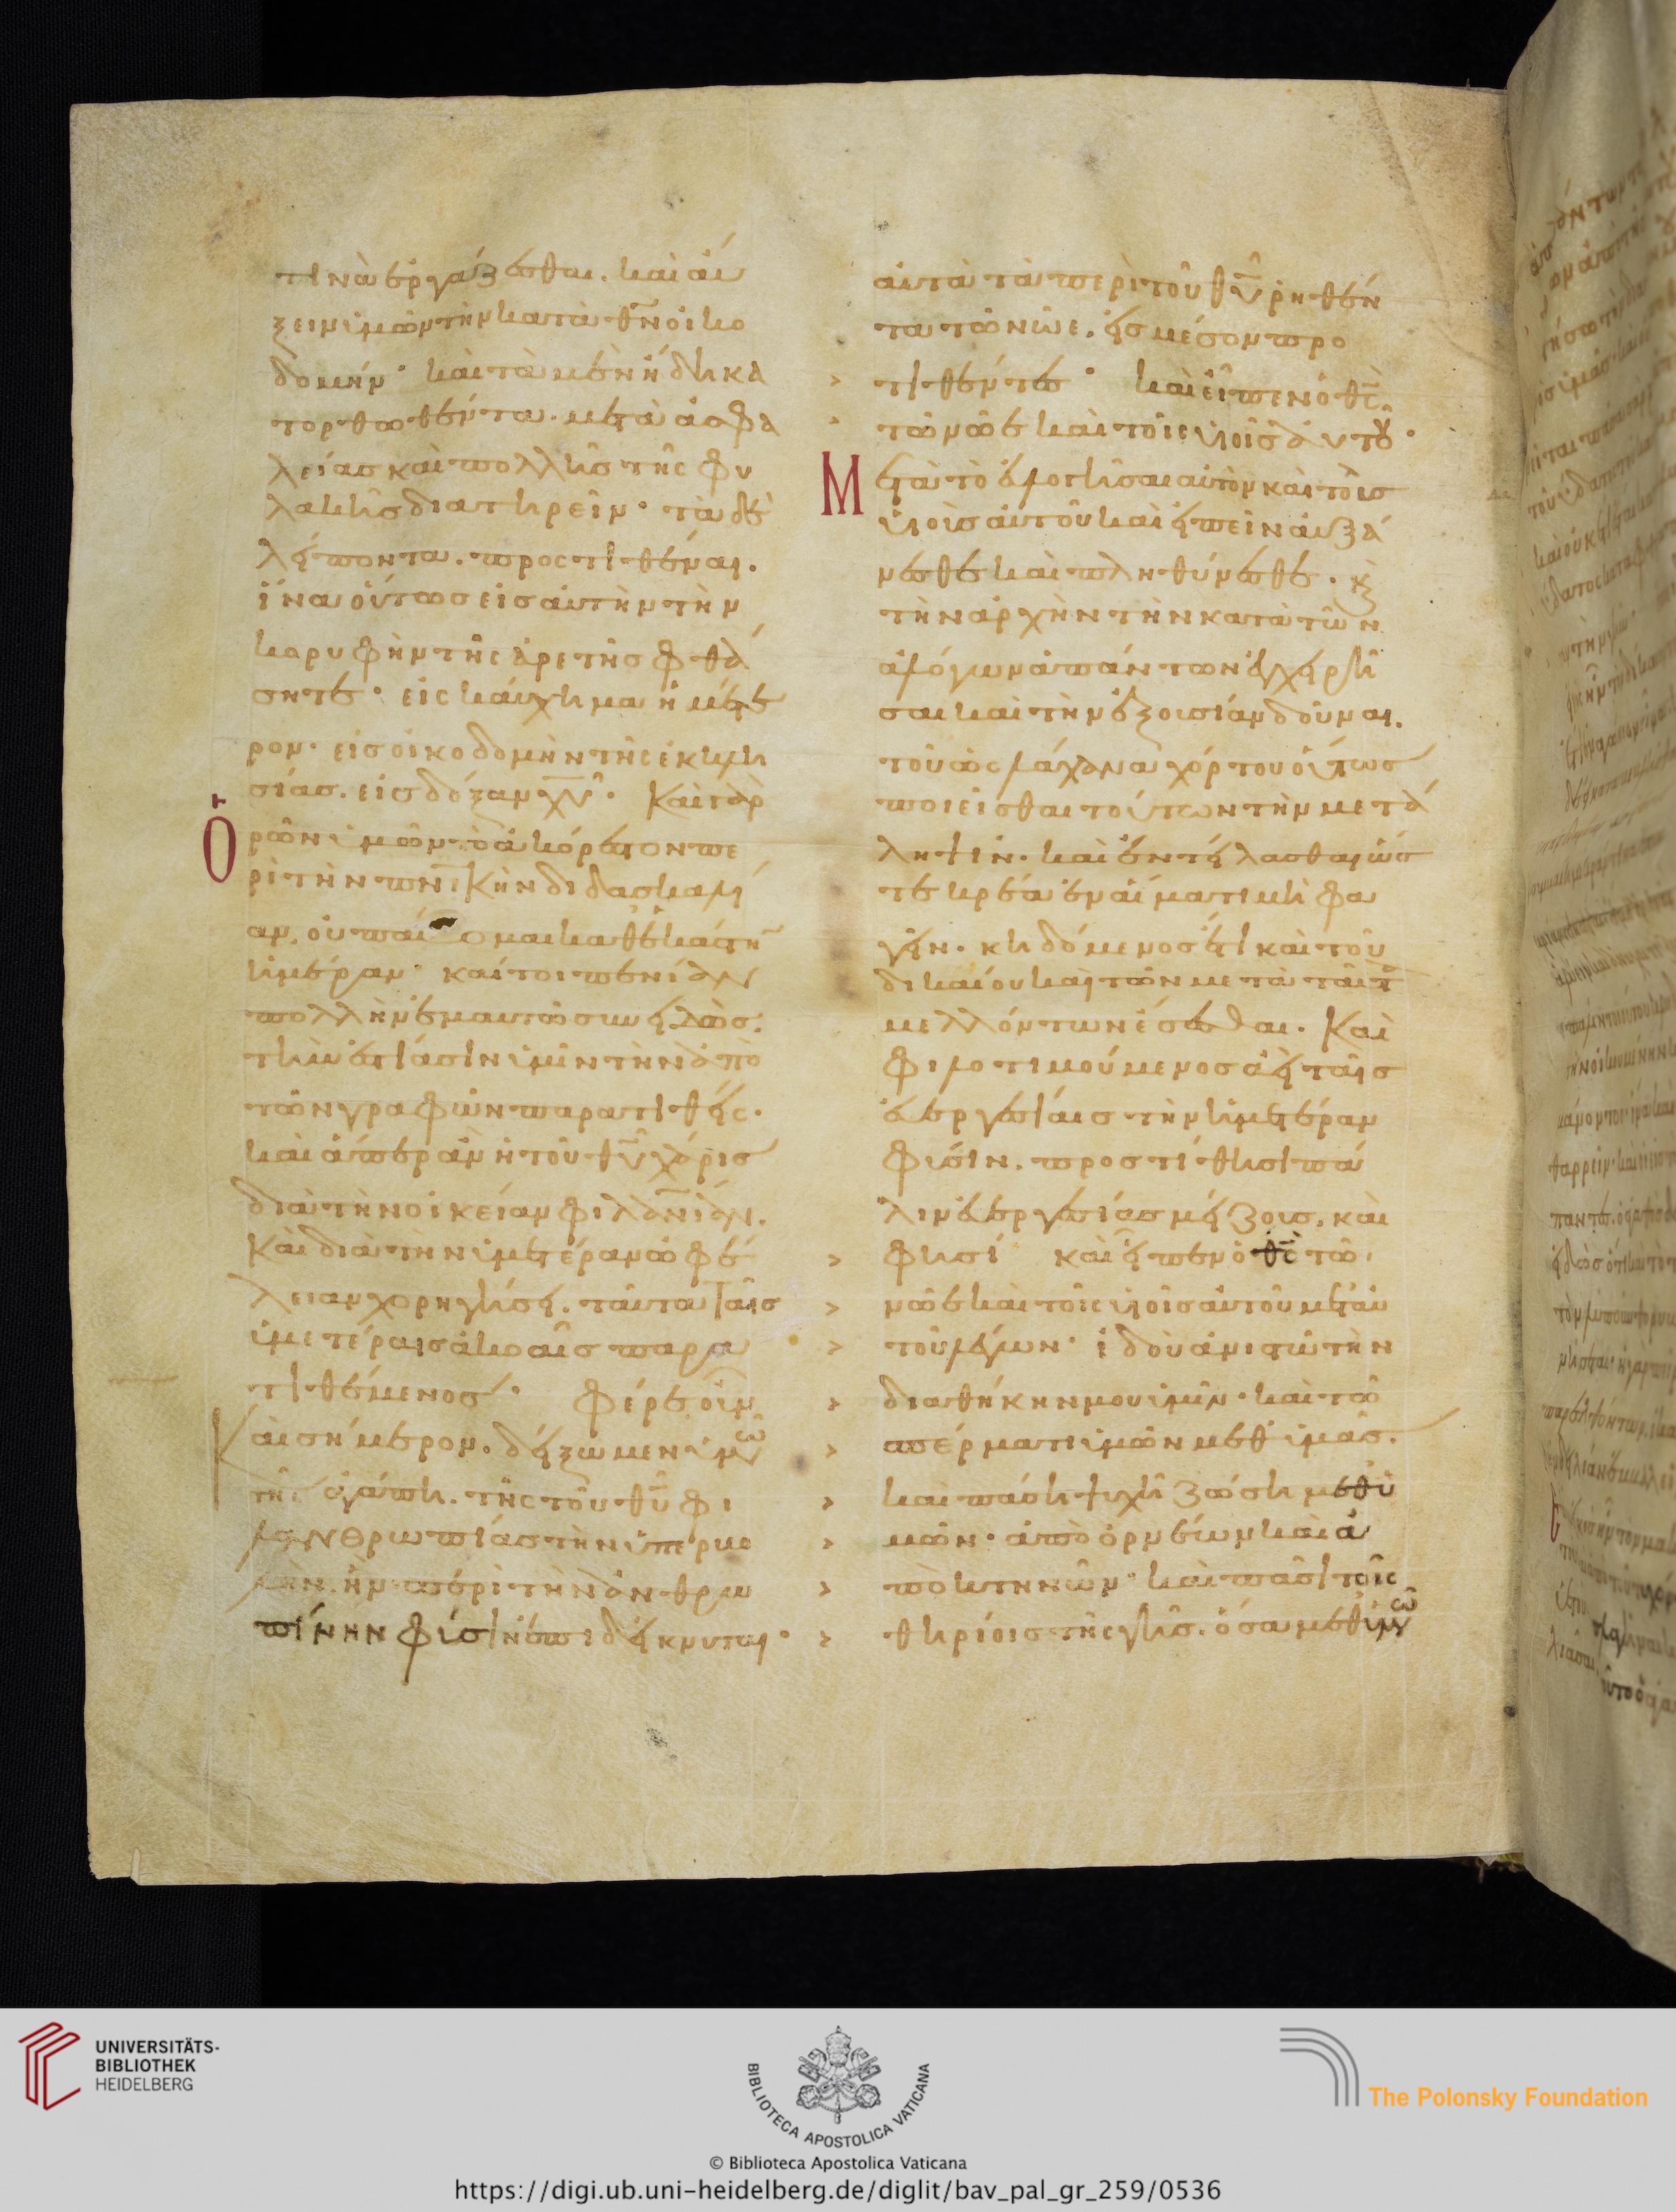 τινὰ ἐργάζεσθαι. καὶ αὔ
ξειν ὑμῶν τὴν κατὰ θν̅ οἰκο
δομήν· καὶ τὰ μὲν ἤδη κα
τορθωθέντα. μετὰ ἀσφα
λείας καὶ πολλῆς τῆς φυ
λακῆς διατηρεῖν· τὰ δὲ
λείποντα. προστιθέναι.
ἵνα οὕτως εἰς αὐτὴν τὴν
κορυφὴν τῆς ἀρετῆς φθά
σητε· εἰς καύχημα ἡμέτε
ρον. εἰς οἰκοδομὴν τῆς ἐκκλη
σίας. εἰς δόξαν χυ̅· Καὶ γὰρ
Ὁρῶν ὑμῶν τὸ ἀκόρεστον πε
ρὶ τὴν πνι̅κὴν διδασκαλί
αν. οὐ παύομαι καθεκάστην
ἡμέραν· καίτοι πενίαν
πολλὴν ἐμαυτῶ συνειδὼς.
τὴν ἑστίασιν ὑμῖν τὴν ἀπὸ
τῶν γραφῶν παρατιθείς.
καὶ ἅπερ ἂν ἡ τοῦ θυ̅ χάρις
διὰ τὴν οἰκείαν φιλανι̅αν.
Καὶ διὰ τὴν ὑμετέραν ὠφέ
λειαν χορηγήση. ταῦτα ταῖς
ὑμετέραις ἀκοαῖς παρα
τιθέμενος· Φέρε οὖν
Καὶ σήμερον. δείξωμεν ὑμῶν
τῆ ἀγάπη. τῆς τοῦ θυ̅ φι
λανθρωπίας τὴν ὑπερβο
λὴν. ἣν περὶ τὴν ἀνθρω
πίνην φύσιν ἐπιδείκνυται·
αὐτὰ τὰ περὶ τοῦ θυ̅ ῥηθέν
τα τῶ νῶε. εἰς μέσον προ
> τιθέντες· καὶ εἶπεν ὁ θς̅
> τῶ νῶε καὶ τοῖς υἱοῖς αὐτοῦ·
Μετὰ τὸ εὐλογῆσαι αὐτὸν καὶ τοῖς
υἱοῖς αὐτοῦ καὶ εἰπεῖν αὐξά
νεσθε καὶ πληθύνεσθε. κ̀
τὴν ἀρχὴν τὴν κατὰ τῶν
ἀλόγων ἁπάντων ἐγχειρῆ
σαι καὶ τὴν ἐξουσίαν δοῦναι.
τοῦ ὡς λάχανα χόρτου οὕτως
ποιεῖσθαι τούτων τὴν μετά
ληψιν. καὶ ἐντείλασθαι ὥσ
τε κρέα ἐν αἵματι μὴ φα
γεῖν. κηδόμενος ἔτι καὶ τοῦ
δικαίου καὶ τῶν μετὰ ταῦτα
μελλόντων ἔσεσθαι. Καὶ
φιλοτιμούμενος ἀεὶ ταῖς
εὐεργεσίαις τὴν ἡμετέραν
φύσιν. προστίθησι πά
λιν εὐεργεσίας μείζους. καὶ
> φησί καὶ εἶπεν ὁ θς̅ τῶ
> νῶε καὶ τοῖς υἱοῖς αὐτοῦ μετ αὐ
> τοῦ λέγων· ἰδοὺ ἀνιστῶ τὴν
> διαθήκην μου ὑμῖν· καὶ τῶ
> σπέρματι ὑμῶν μεθ ὑμᾶς.
> καὶ πάση ψυχῆ ζώση μεθ ὑ
> μῶν· ἀπὸ ὀρνέων καὶ ἀ
> πὸ κτηνῶν· καὶ πᾶσι τοῖς
> θηρίοις τῆς γῆς. ὅσα μεθ ὑμῶν
UNIVERSITÄTS-
BIBLIOTHEK
HEIDELBERG
BIBLIOTECA APOSTOLICA VATICANA
The Polonsky Foundation
© Biblioteca Apostolica Vaticana
https://digi.ub.uni-heidelberg.de/diglit/bav_pal_gr_259/0536